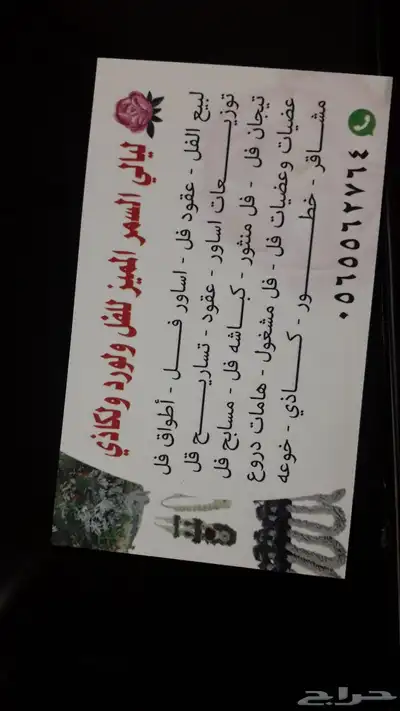 ليالي السمر المميز للفل ولورد ولكاذي
لبيع الفل - عقود فل - اساور فل - أطواق فل
توزيعات اساور - عقود - تساريح فل
تيجان فل - فل منثور - كباشه فل - مسابح فل
عضيات وعضيات فل - فل مشغول - هامات دروع
مشاقر - خطور - كاذي - خوعه
٠٥٦٥٥٦٢٧٦٤
حراج